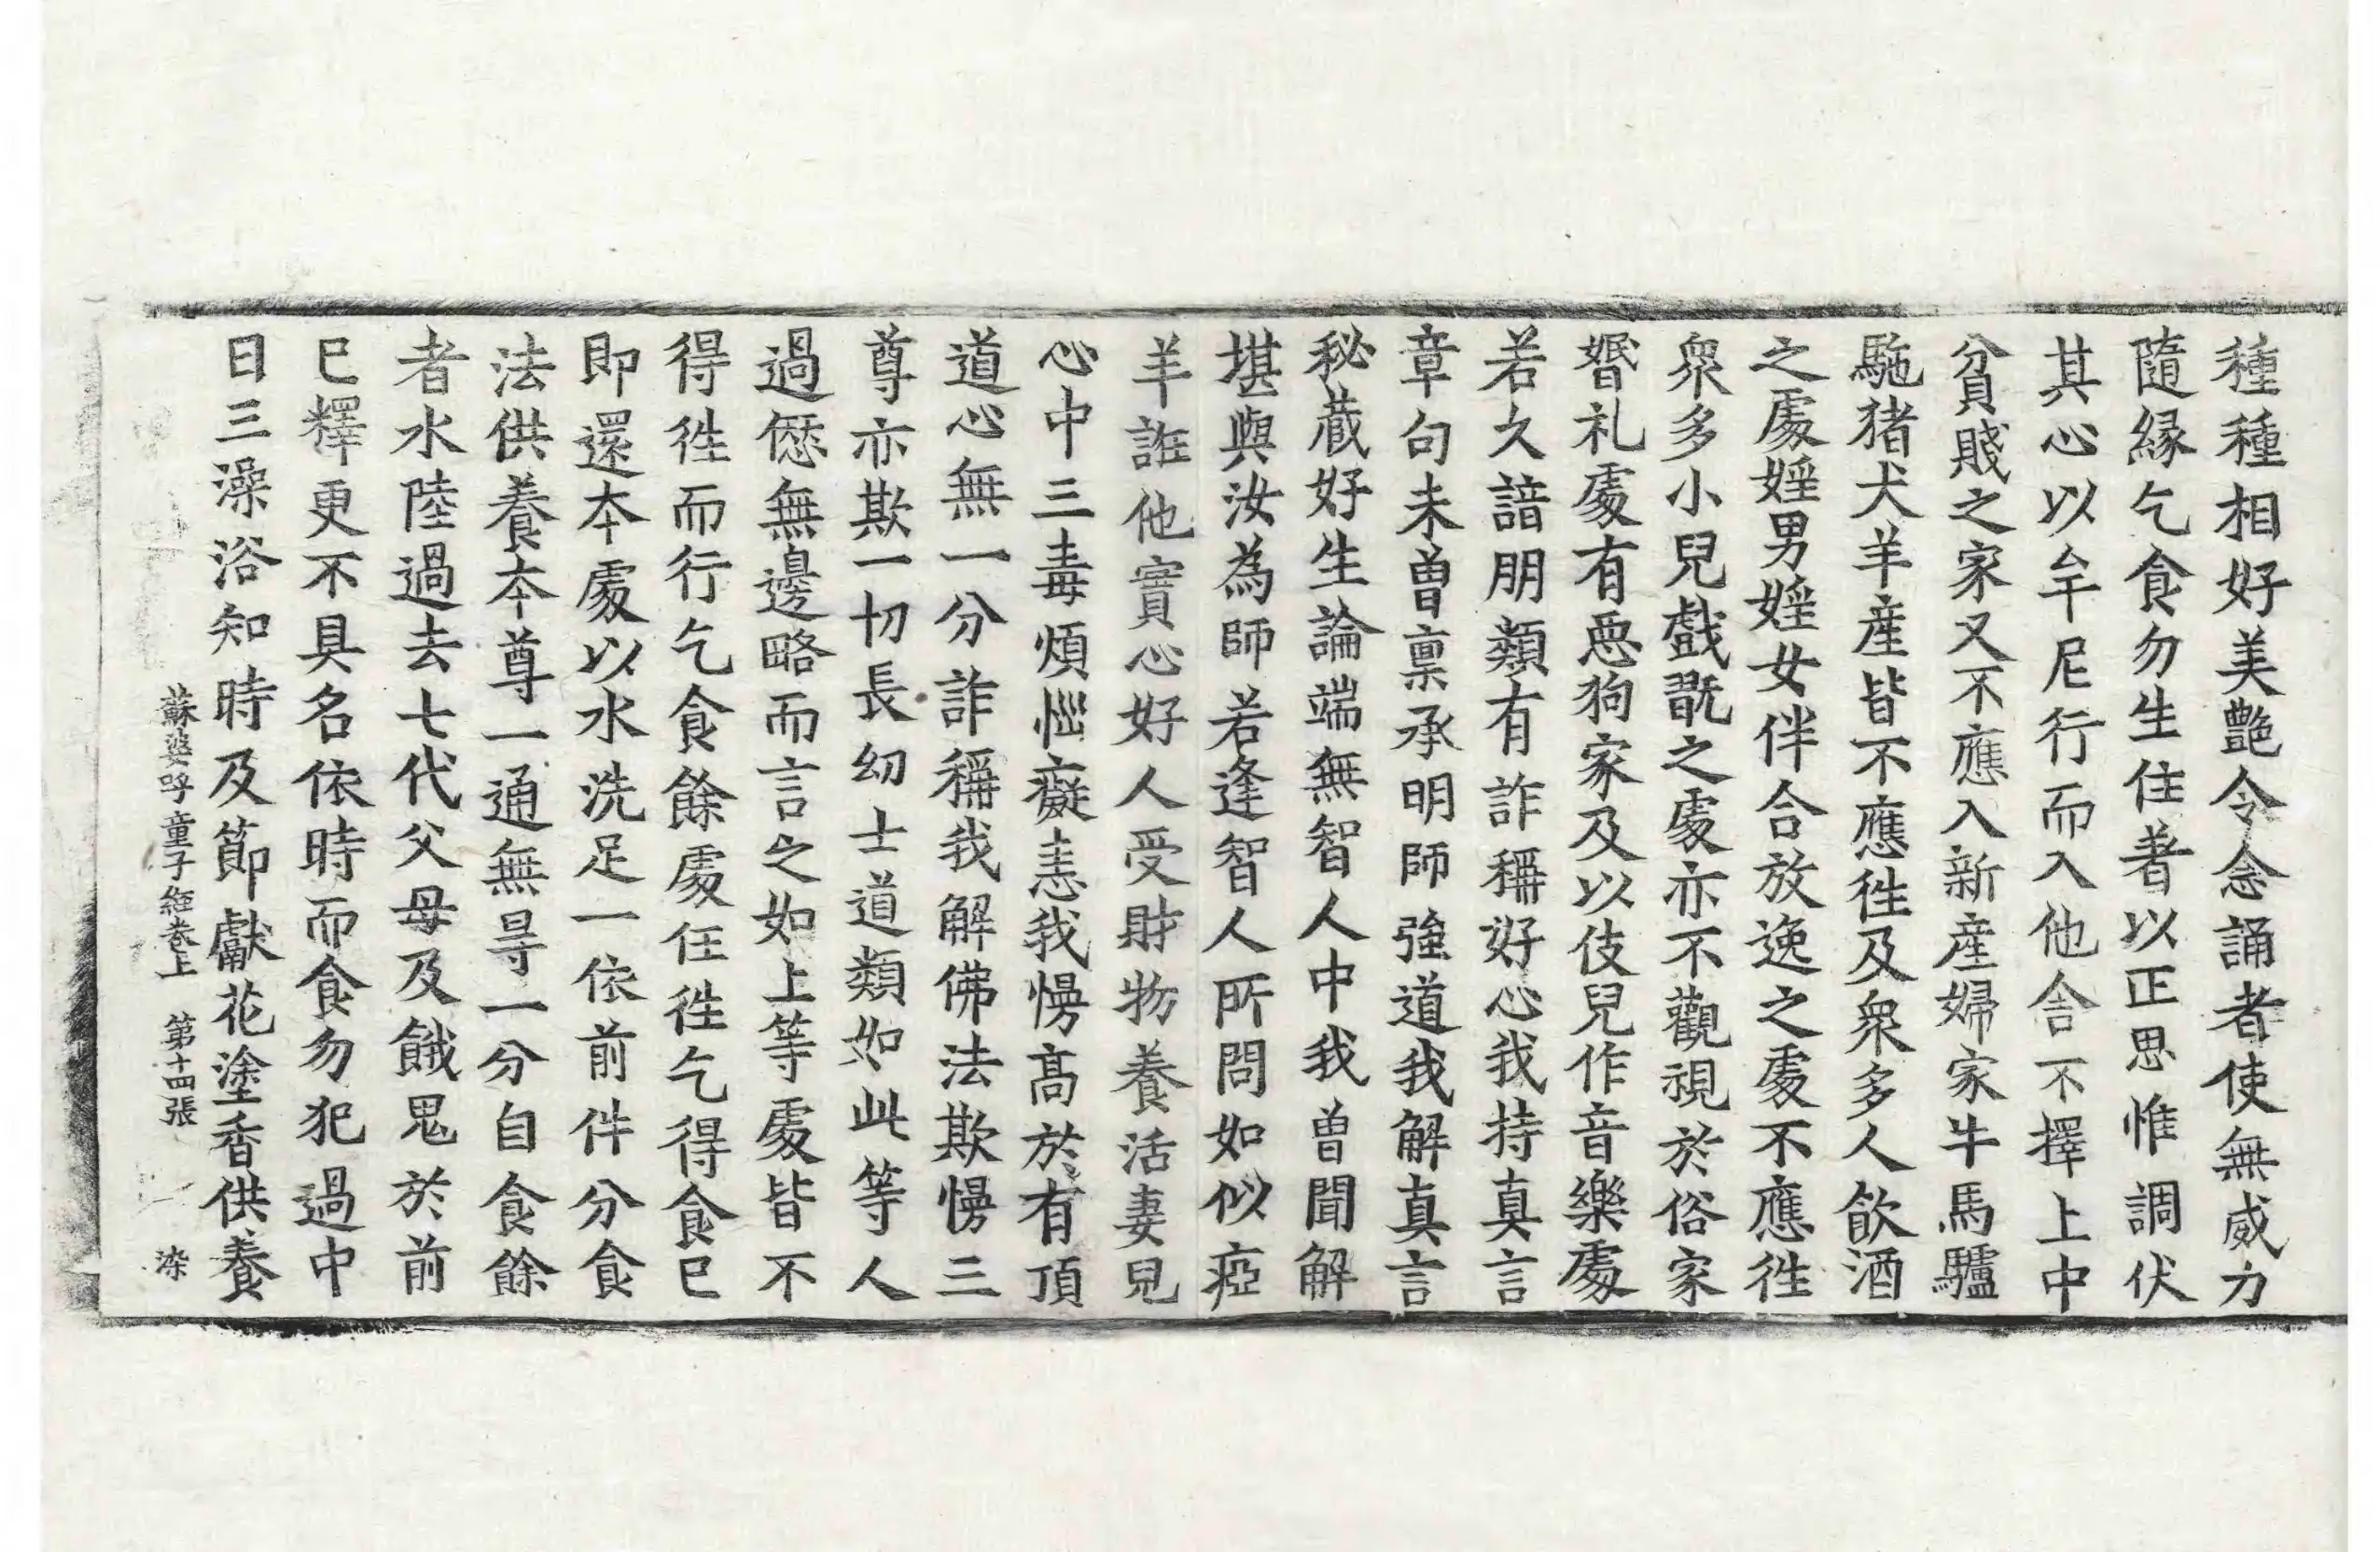 種種相好美艶令念誦者使無威力
隨縁乞食勿生住著以正思惟調伏
其心以牟尼行而入他舎不擇上中
貧賤之家又不應入新産婦家牛馬驢
駞猪犬羊産皆不應徃及衆多人飲酒
之處婬男婬女伴合放逸之處不應徃
衆多小兒戲翫之處亦不觀視於俗家
婚礼處有惡狗家及以伎兒作音樂處
若久諳朋類有詐稱好心我持真言
章句未曽稟承明師強道我解真言
秘蔵好生論端無智人中我曽聞解
堪與汝為師若逢智人所問如似瘂
羊誑他實心好人受財物養活妻兒
心中三毒煩惱癡恚我慢髙於有頂
道心無一分詐稱我解佛法欺慢三
尊亦欺一切長幼士道類如此等人
過𠎝無邊略而言之如上等處皆不
得徃而行乞食餘處任徃乞得食已
即還本處以水洗足一依前件分食
法供養本尊一通無㝵一分自食餘
者水陸過去七代父母及餓鬼於前
已釋更不具名依時而食勿犯過中
日三澡浴知時及節獻花塗香供養
蘇婆呼童子経卷上　第十四張　染